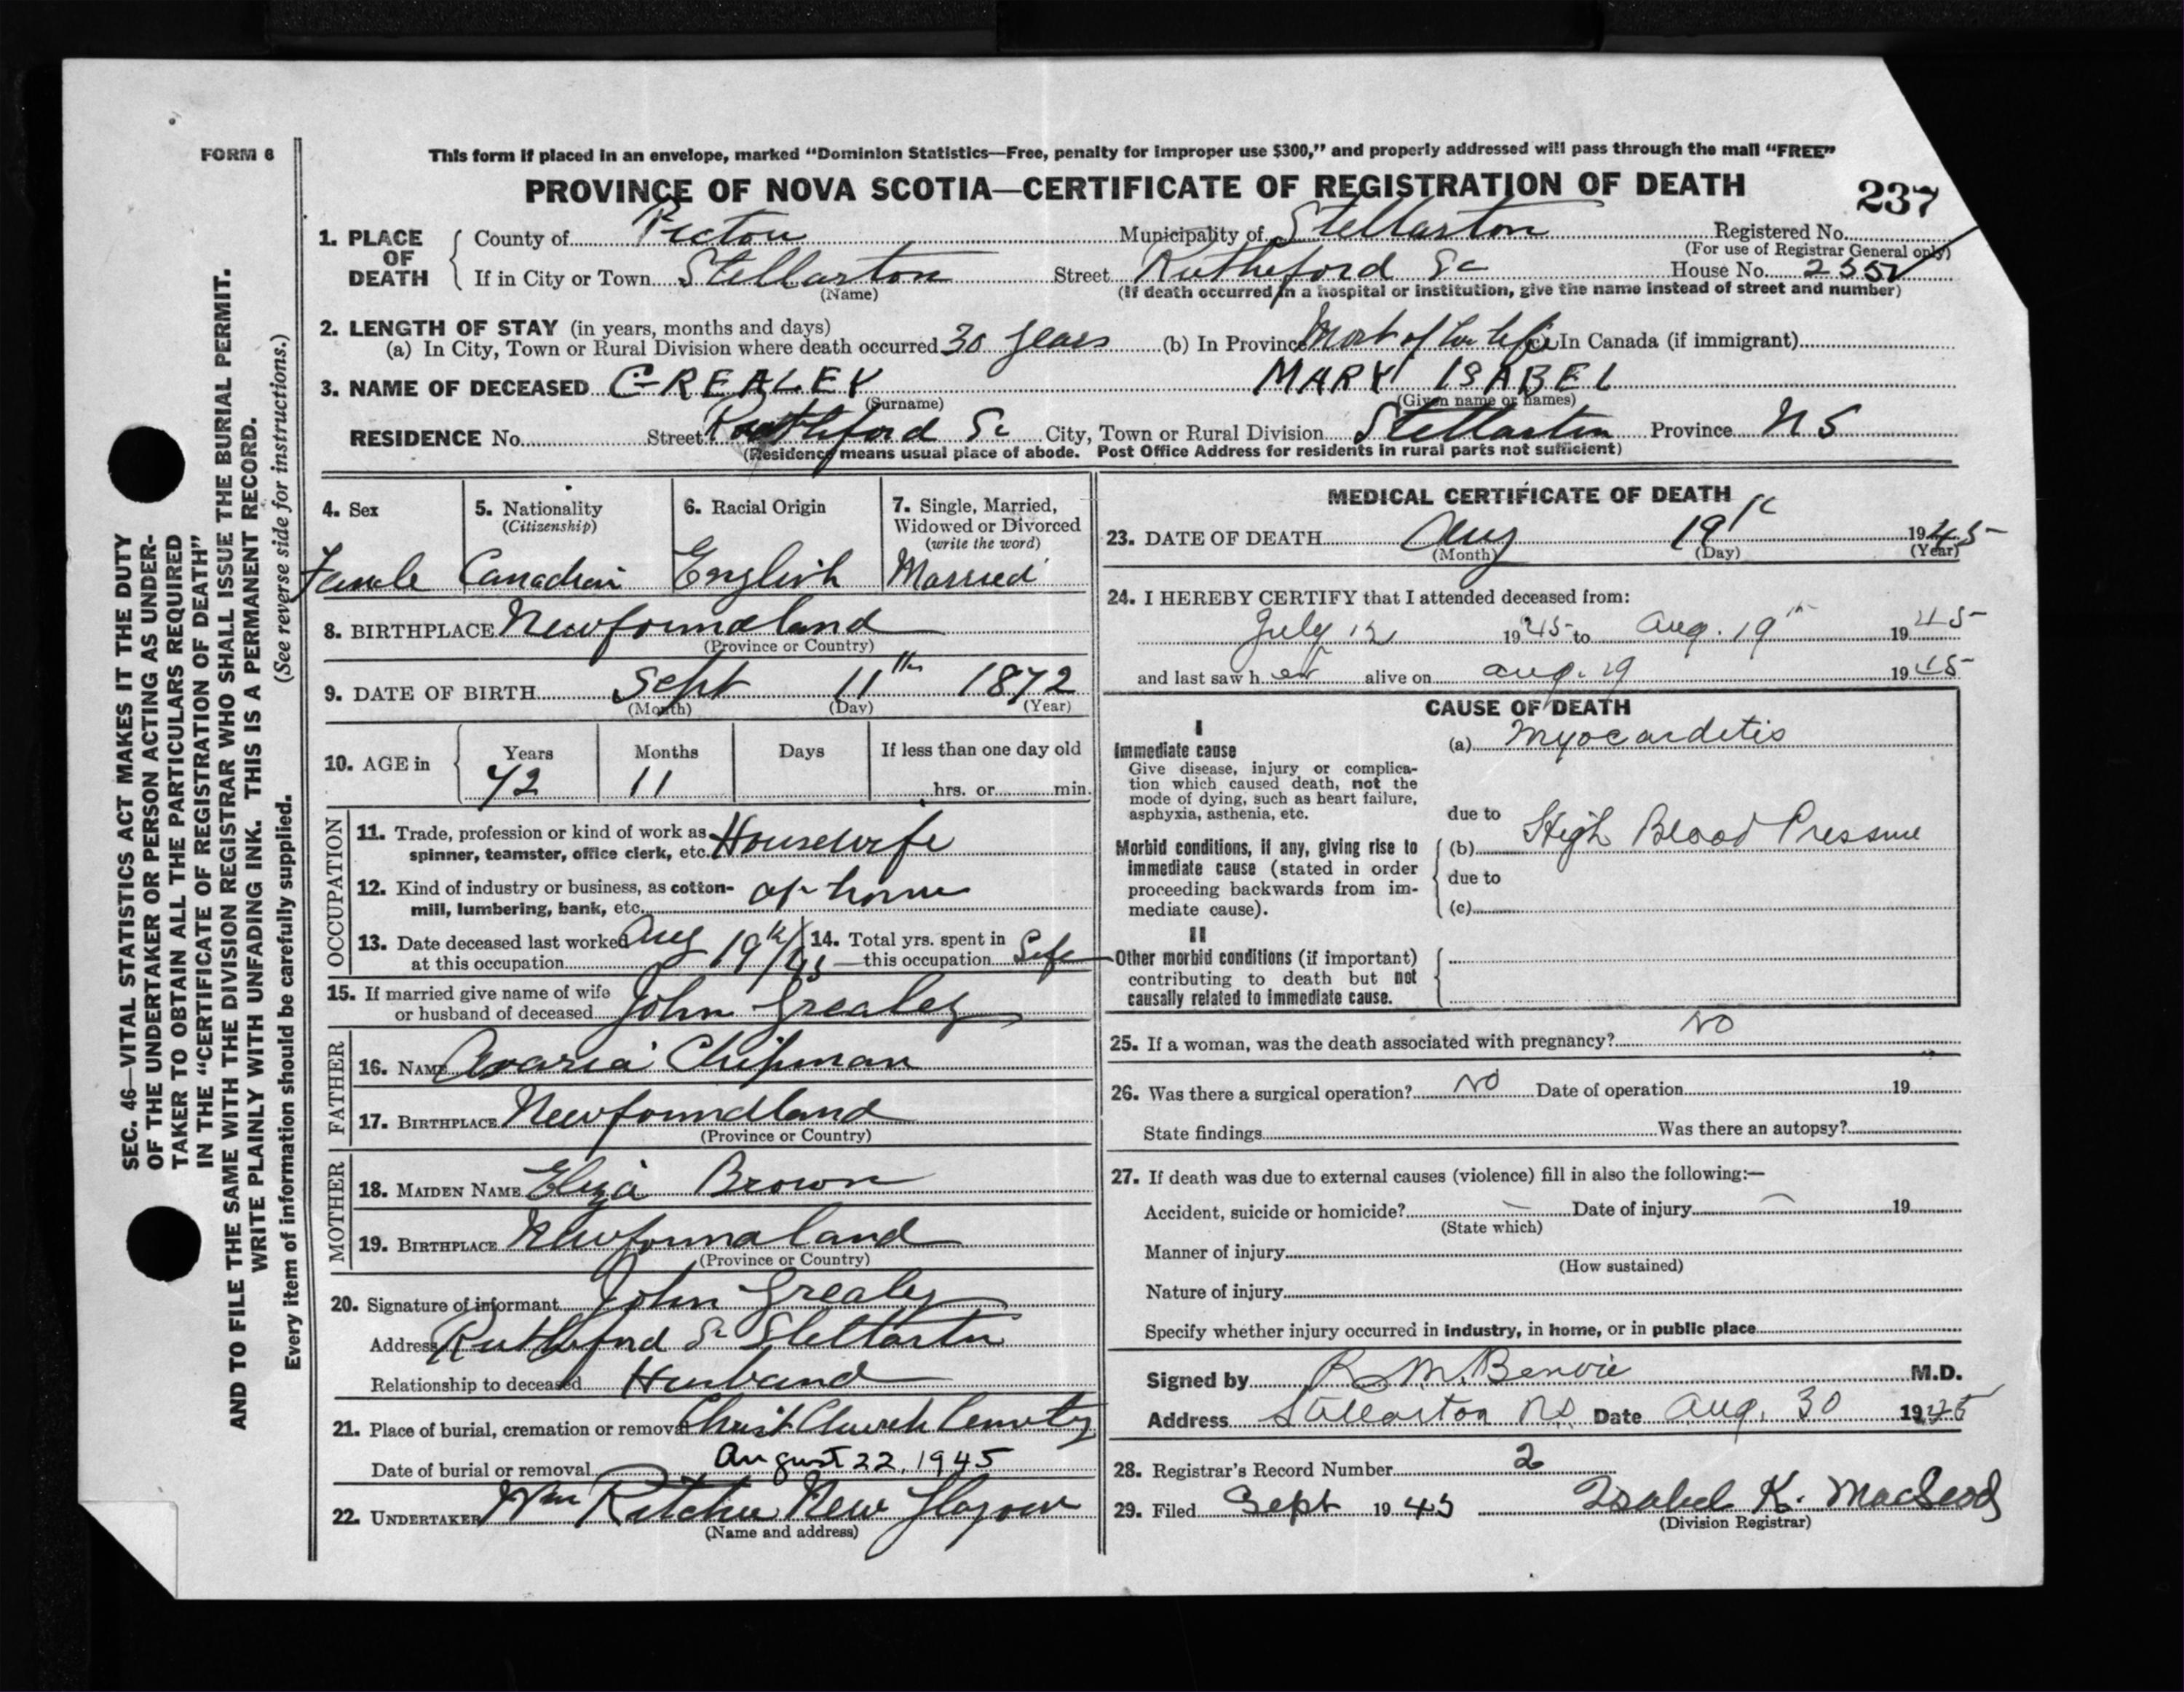 FORM 6
This form if placed in an envelope, marked “Dominion Statistics—Free, penalty for improper use $300,” and properly addressed will pass through the mail “FREE”
PROVINCE OF NOVA SCOTIA—CERTIFICATE OF REGISTRATION OF DEATH
237
1. PLACE OF DEATH County of Pictou Municipality of Stellarton Registered No.
(For use of Registrar General only)
If in City or Town Stellarton Street Rutheford St House No.
(Name) (If death occurred in a hospital or institution, give the name instead of street and number)
2. LENGTH OF STAY (in years, months and days)
(a) In City, Town or Rural Division where death occurred 30 years (b) In Province Most of her life (c) In Canada (if immigrant)
3. NAME OF DECEASED GREALEY MARY ISABEL
(Surname) (Given name or names)
RESIDENCE No. Street Rutheford St City, Town or Rural Division Stellarton Province N S
(Residence means usual place of abode. Post Office Address for residents in rural parts not sufficient)
4. Sex 5. Nationality (Citizenship) 6. Racial Origin 7. Single, Married, Widowed or Divorced (write the word)
Female Canadian English Married
8. BIRTHPLACE Newfoundland
(Province or Country)
9. DATE OF BIRTH Sept 11th 1872
(Month) (Day) (Year)
10. AGE in Years Months Days If less than one day old
72 11 hrs. or min.
OCCUPATION
11. Trade, profession or kind of work as spinner, teamster, office clerk, etc. Housewife
12. Kind of industry or business, as cotton-mill, lumbering, bank, etc. at home
13. Date deceased last worked at this occupation Aug 19th/45 14. Total yrs. spent in this occupation Life
15. If married give name of wife or husband of deceased John Grealey
FATHER
16. NAME Chipman
17. BIRTHPLACE Newfoundland
(Province or Country)
MOTHER
18. MAIDEN NAME Eliza Brown
19. BIRTHPLACE Newfoundland
(Province or Country)
20. Signature of informant John Grealey
Address Rutheford St Stellarton
Relationship to deceased Husband
21. Place of burial, cremation or removal Christ Church Cemetery
Date of burial or removal August 22, 1945
22. UNDERTAKER Wm Ritchie New Glasgow
(Name and address)
MEDICAL CERTIFICATE OF DEATH
23. DATE OF DEATH Aug 19th 1945
(Month) (Day) (Year)
24. I HEREBY CERTIFY that I attended deceased from:
July 12 1945 to Aug. 19th 1945
and last saw her alive on Aug. 19 1945
CAUSE OF DEATH
I
Immediate cause
Give disease, injury or complication which caused death, not the mode of dying, such as heart failure, asphyxia, asthenia, etc.
(a) Myocarditis
due to
Morbid conditions, if any, giving rise to immediate cause (stated in order proceeding backwards from immediate cause).
(b) High Blood Pressure
due to
(c)
II
Other morbid conditions (if important) contributing to death but not causally related to immediate cause.
25. If a woman, was the death associated with pregnancy? No
26. Was there a surgical operation? No Date of operation 19
State findings Was there an autopsy?
27. If death was due to external causes (violence) fill in also the following:—
Accident, suicide or homicide? — Date of injury — 19
(State which)
Manner of injury
(How sustained)
Nature of injury
Specify whether injury occurred in industry, in home, or in public place
Signed by R M. Benvie M.D.
Address Stellarton NS Date Aug. 30 1945
28. Registrar's Record Number 2
29. Filed Sept 1945 Isabel K. MacLeod
(Division Registrar)
SEC. 46—VITAL STATISTICS ACT MAKES IT THE DUTY
OF THE UNDERTAKER OR PERSON ACTING AS UNDER-
TAKER TO OBTAIN ALL THE PARTICULARS REQUIRED
IN THE “CERTIFICATE OF REGISTRATION OF DEATH”
AND TO FILE THE SAME WITH THE DIVISION REGISTRAR WHO SHALL ISSUE THE BURIAL PERMIT.
WRITE PLAINLY WITH UNFADING INK. THIS IS A PERMANENT RECORD.
(See reverse side for instructions.)
Every item of information should be carefully supplied.